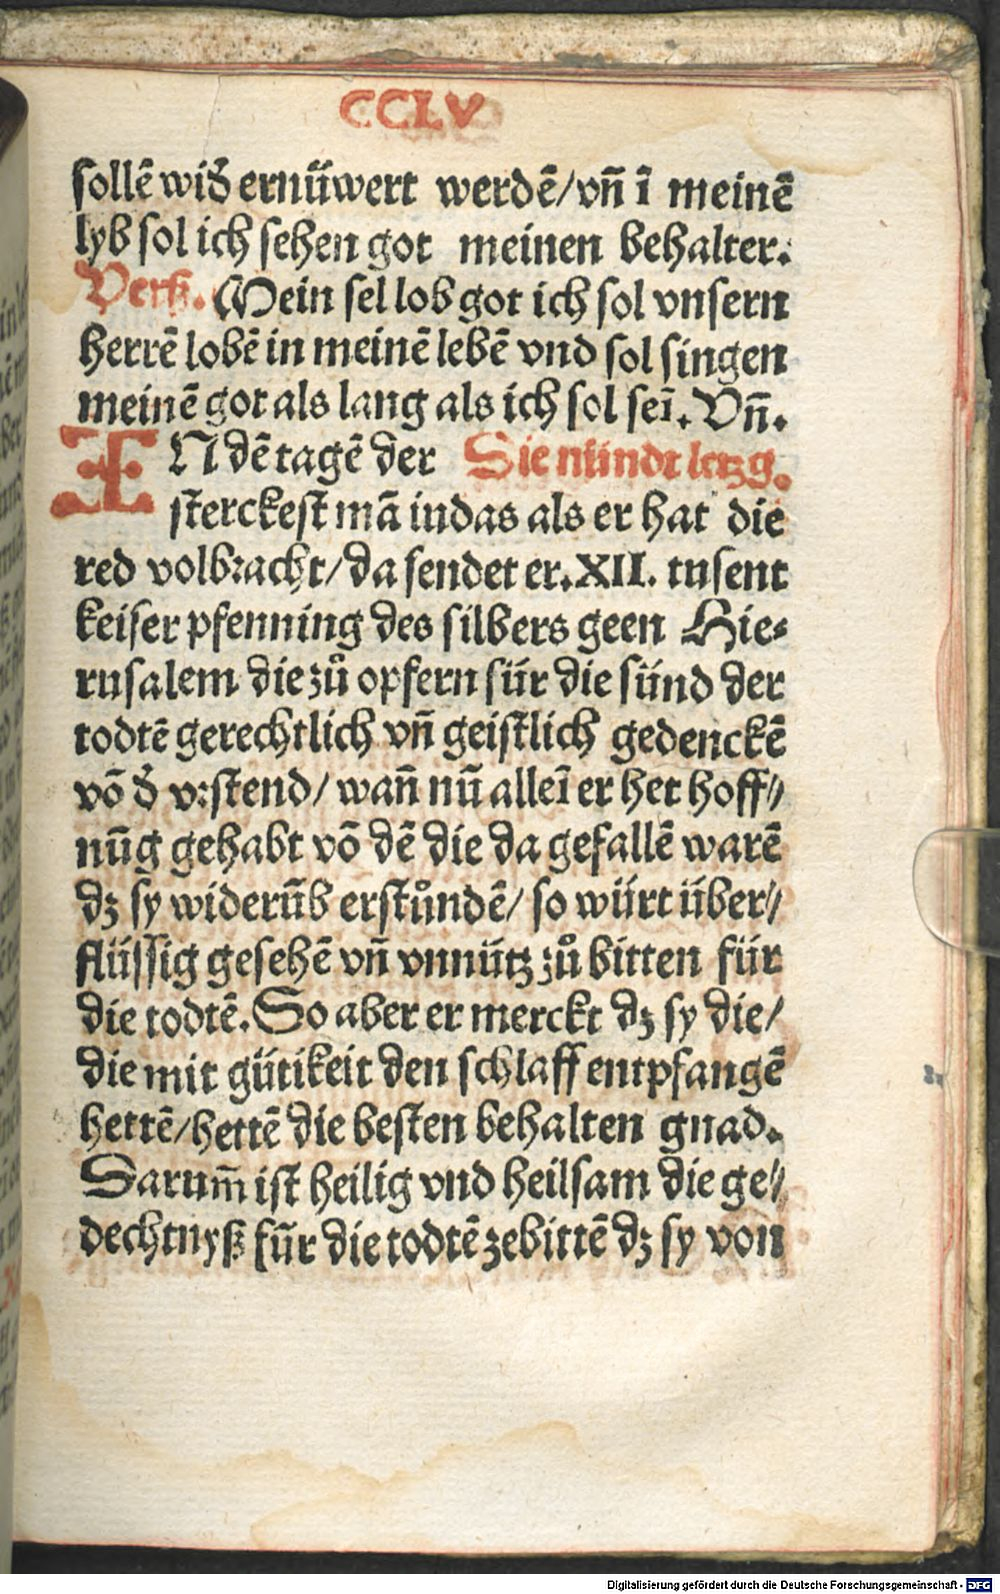 CCLV
sollē wid̄ ernüwert werdē/vn̄ ī meinē
lyb sol ich sehen got meinen behalter.
Verß. Mein sel lob got ich sol vnsern
herrē lobē in meinē lebē vnd sol singen
meinē got als lang als ich sol seī. Vn̄.
IN dē tagē der Die nündt letzg.
sterckest mā iudas als er hat die
red volbracht/da sendet er.XII. tusent
keiser pfenning des silbers geen Hie-
rusalem die zů opfern für die sünd der
todtē gerechtlich vn̄ geistlich gedenckē
vō d̄ vrstend/wan̄ nū alleī er het hoff//
nūg gehabt vō dē die da gefallē warē
dz sy widerūb erstůndē/so würt über//
flüssig gesehē vn̄ vnnütz zů bitten für
die todtē. So aber er merckt dz sy die/
die mit gütikeit den schlaff entpfangē
hettē/hettē die besten behalten gnad.
Darum̄ ist heilig vnd heilsam die ge//
dechtnyß für die todtē zebittē dz sy von
Digitalisierung gefördert durch die Deutsche Forschungsgemeinschaft - DFG